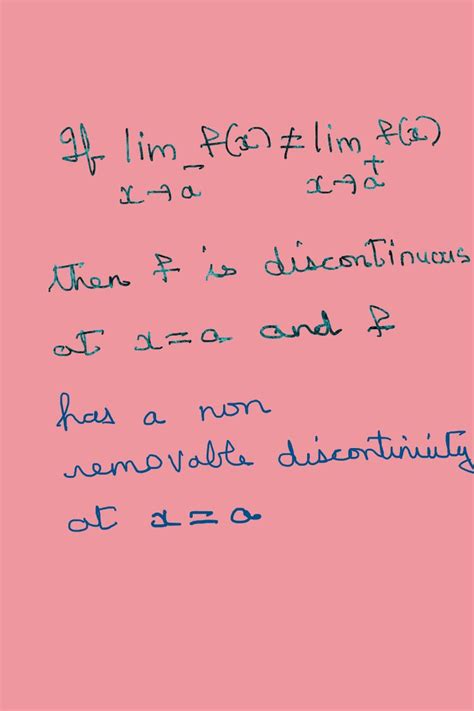 If lim f(x) ≠ lim f(x)
x→a⁻ x→a⁺
then f is discontinuous
at x=a and f
has a non
removable discontinuity
at x=a